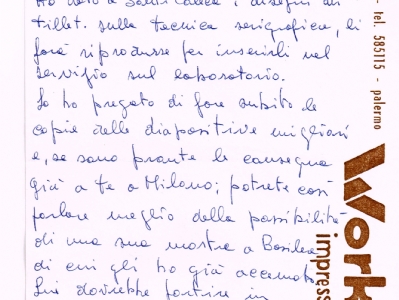 Ho dato a Santi Caleca i disegni di
Tillet. sulla tecnica serigrafica, li
farà riprodurre per inserirli nel
servizio sul laboratorio.
Lo ho pregato di fare subito le
copie delle diapositive migliori
e, se sono pronte le consegna
già a te a Milano; potrete così
parlare meglio della possibilità
di una sua mostra a Basilea
di cui gli ho già accennato.
Lui dovrebbe partire in
- tel. 585115 - palermo
Work
impress